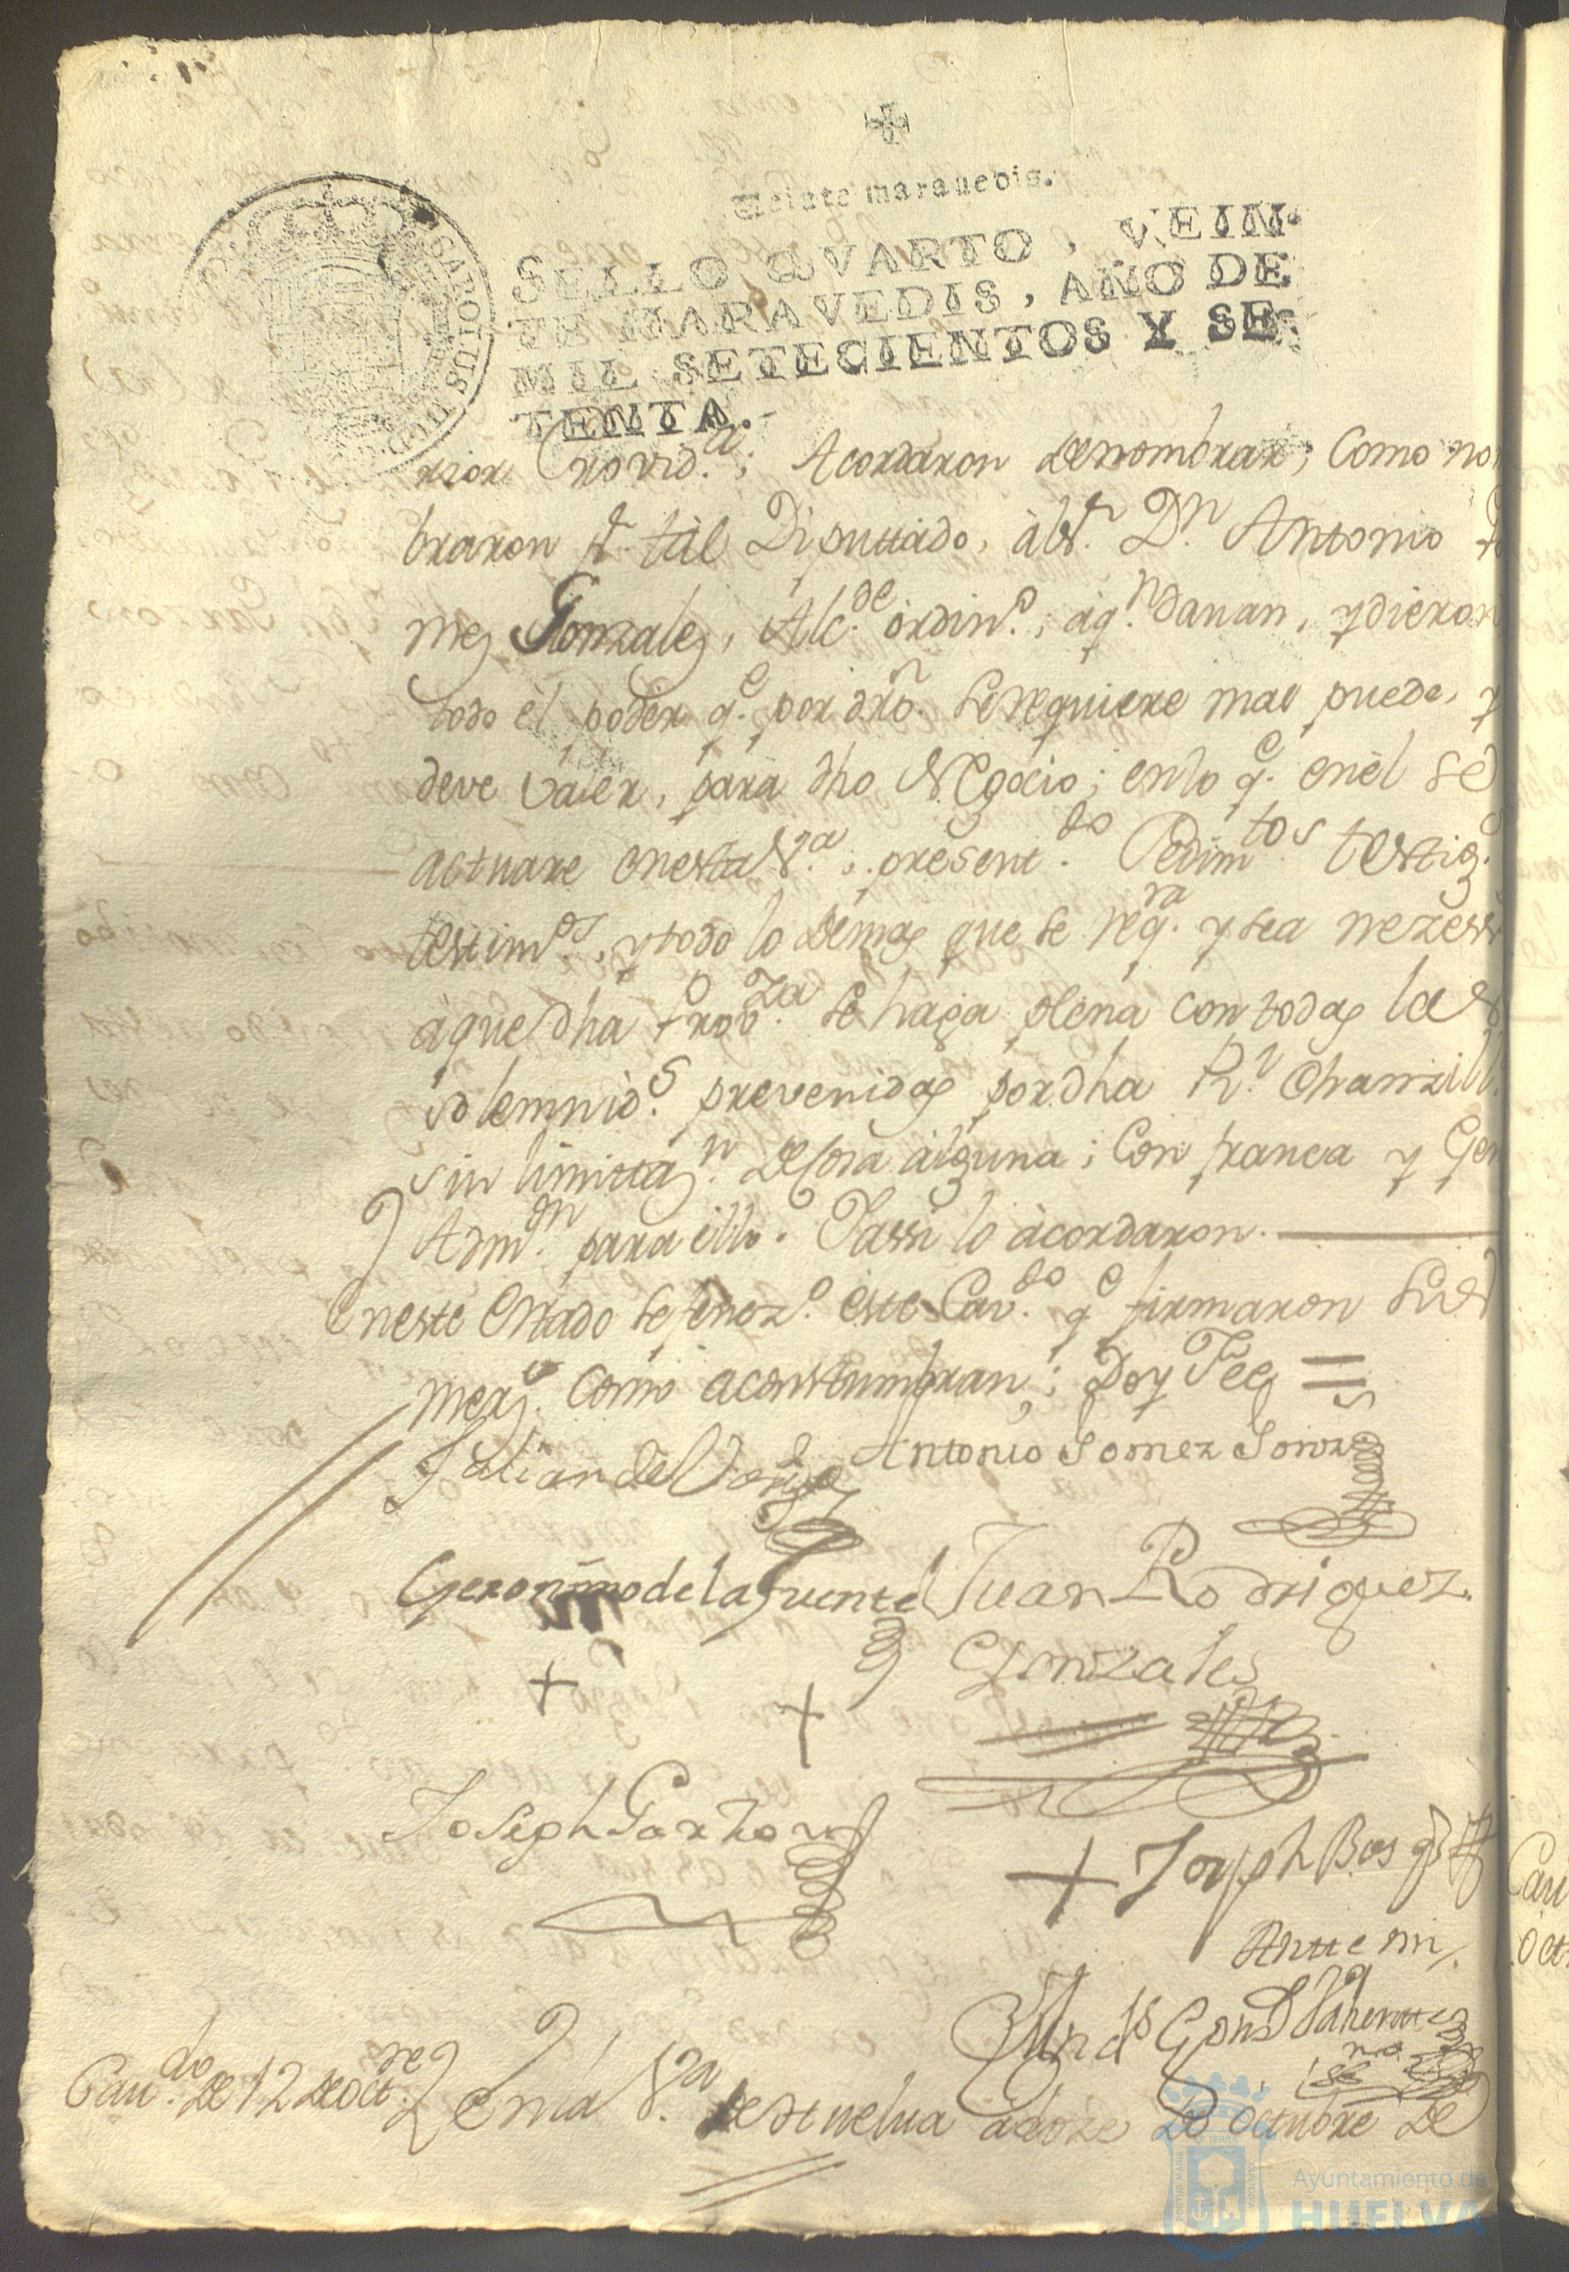 Veinte maravedis.
SELLO QVARTO, VEIN-
TE MARAVEDIS, AÑO DE
MIL SETECIENTOS Y SE-
TENTA.
CAROLUS III D G
rior Provid.a; Acordaron de nombrar, Como nom
braron p.r tàl Diputtàdo, àl S.r D.n Antonio
mez Gonzalez, Alc.de òrdin.o; àq.n davan, y dieron
todo èl poder q.e por dr̃o. se requiere mas puede, y
deve valer, para dho Negòcio; en lo q.e enèl se
actuare enesta V.a, present.do Pedim.tos testig.s
testim.os, y todo lo demas que se req.ra y sea nezess
àque dha Prov.za se haga plena con todas las
solemnid.s prevenidas por dha R.l Chanzill.
sin limittaz.n de cosa àlguna; Con franca y Gen
Adm.on para èllo. Y assi lo àcordaron.
Eneste estado se fenez.o èste Cav.do q.e firmaron sus
merz.s como acostumbran; Doy Fee =
Julian de
Antonio Gomez Gonz.s
Geronimo de la Fuente
Juan Rodriguez.
Gonzales
Joseph Garzon
+ Joseph Bas
Antte mi,
Cav.do de 12 de Oct.re
En la V.a de Huelva à doze de Octubre de
Cav
Oct
Ayuntamiento de
HUELVA